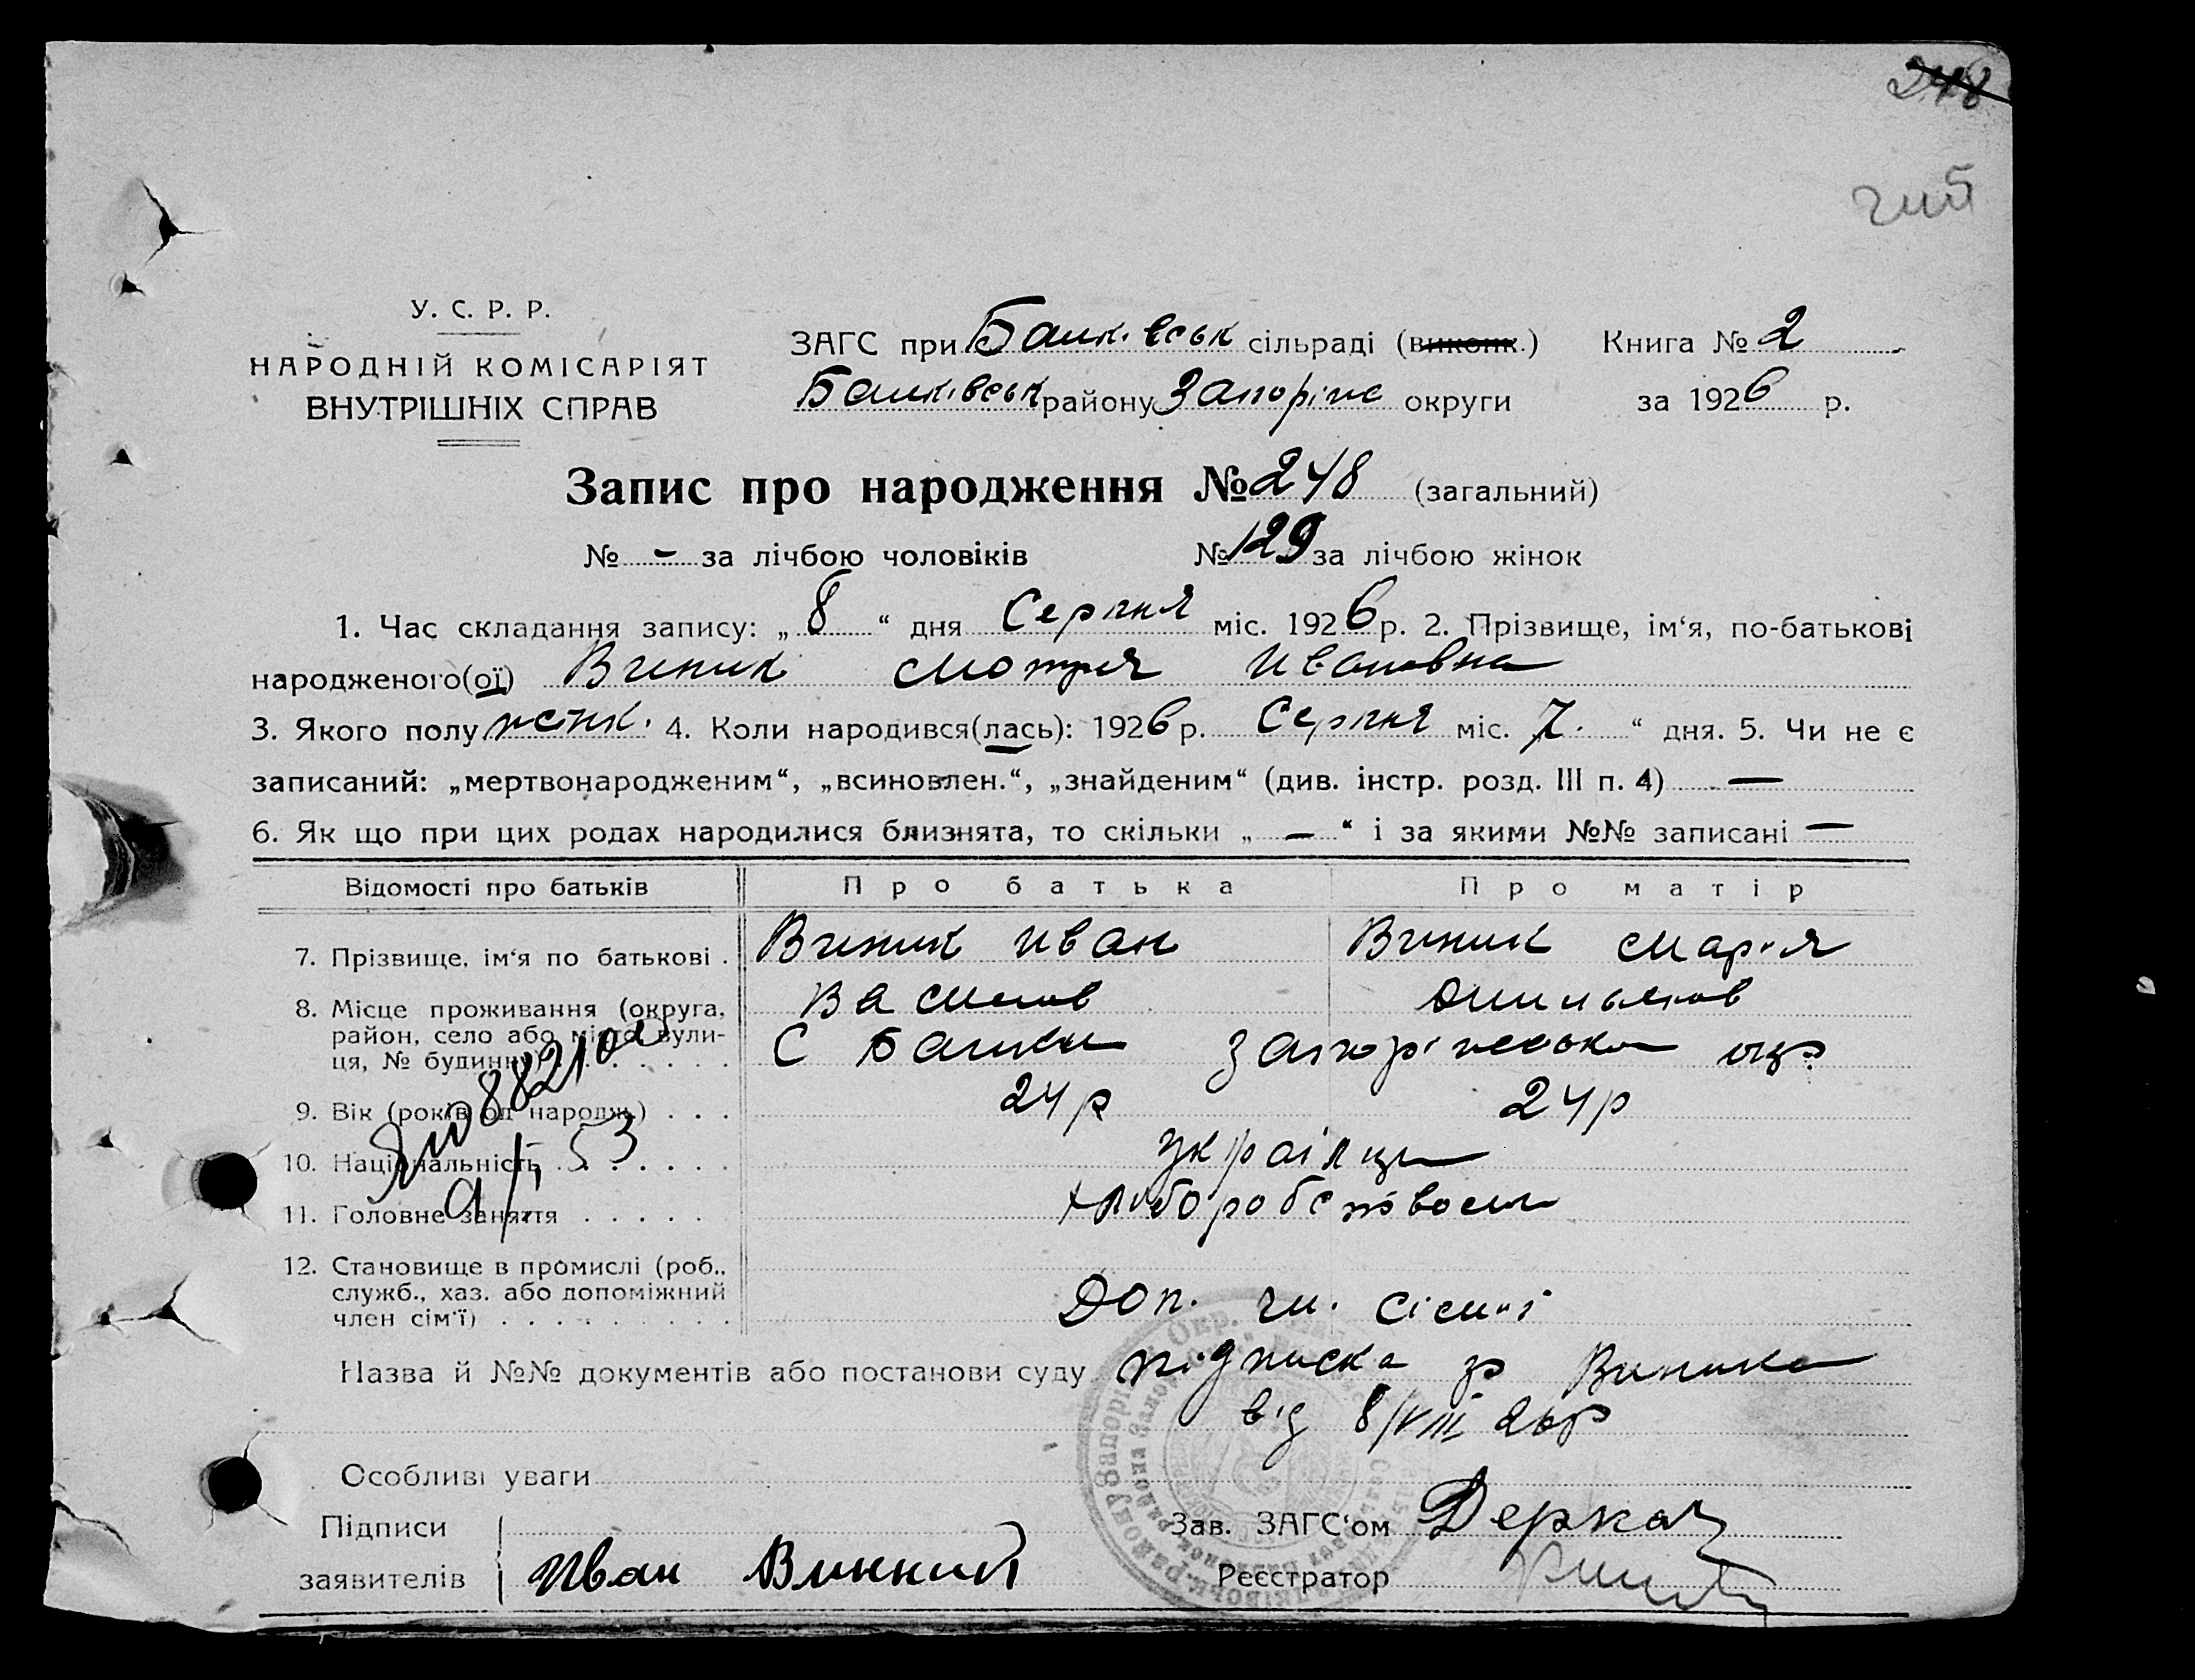 248
У. С. Р. Р.
НАРОДНІЙ КОМІСАРІЯТ
ВНУТРІШНІХ СПРАВ
ЗАГС при Балк. вськ сільраді (виконк.) Книга № 2
Балківськ району Запоріж округи за 1926 р.
Запис про народження № 248 (загальний)
№ - за лічбою чоловіків № 129 за лічбою жінок
1. Час складання запису: „ 8 “ дня Серпня міс. 1926 р. 2. Прізвище, ім‘я, по-батькові
народженого(ої) Виник Мотря Ивановна
3. Якого полу жінк. 4. Коли народився(лась): 1926 р. Серпня міс. 7. “ дня. 5. Чи не є
записаний: „мертвонародженим“, „всиновлен.“, „знайденим“ (див. інстр. розд. III п. 4) —
6. Як що при цих родах народилися близнята, то скільки „ — “ і за якими №№ записані —
Відомості про батьків Про батька Про матір
7. Прізвище, ім‘я по батькові . Виник Иван Виник Мария
8. Місце проживання (округа, Васил
район, село або місто, вули-
ця, № будинку) . . . . . . . С Балки Запоріжська окр.
9. Вік (років од народж.) . . . 24 р 24 р
10. Національність . . . . . . українци
11. Головне заняття . . . . . хліборобством
12. Становище в промислі (роб.,
служб., хаз. або допоміжний
член сім‘ї) . . . . . . . . . Доп. чл. сімиї
Назва й №№ документів або постанови суду підписка гр Виника
від 8/VIII 26р
Особливі уваги
Підписи Зав. ЗАГС‘ом Деркач
заявителів Иван Винний Реєстратор